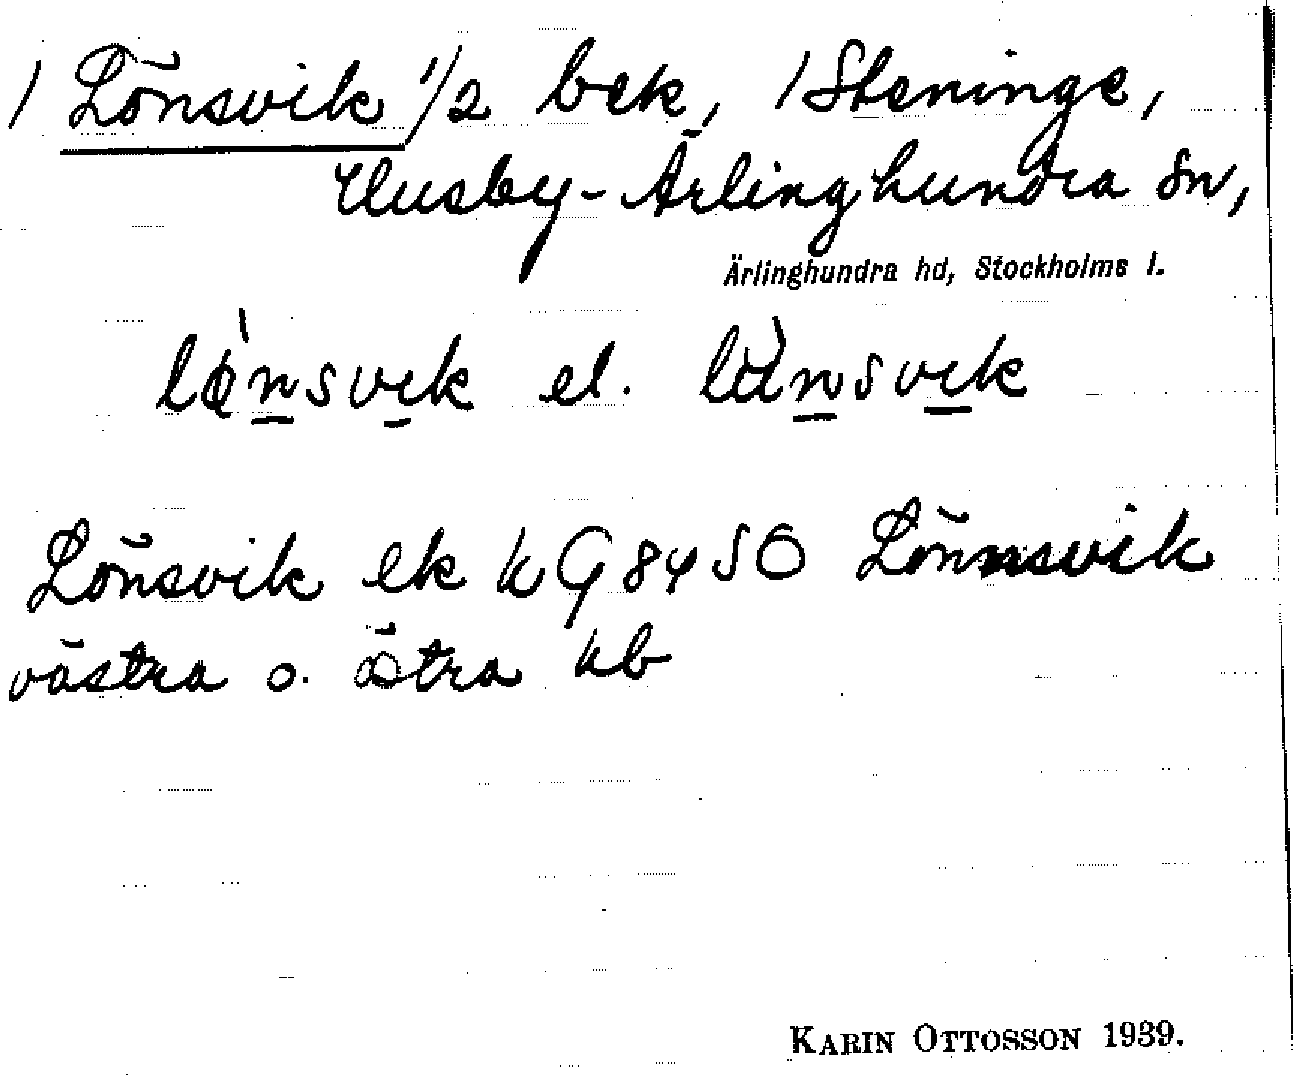 / Lönsvik 1/2 bek, / Steninge,
Husby-Ärlinghundra sn,
Ärlinghundra hd, Stockholms l.
el.
Lönsvik ek kG 84 SO Lönnsvik
västra o. östra kb
KARIN OTTOSSON 1939.